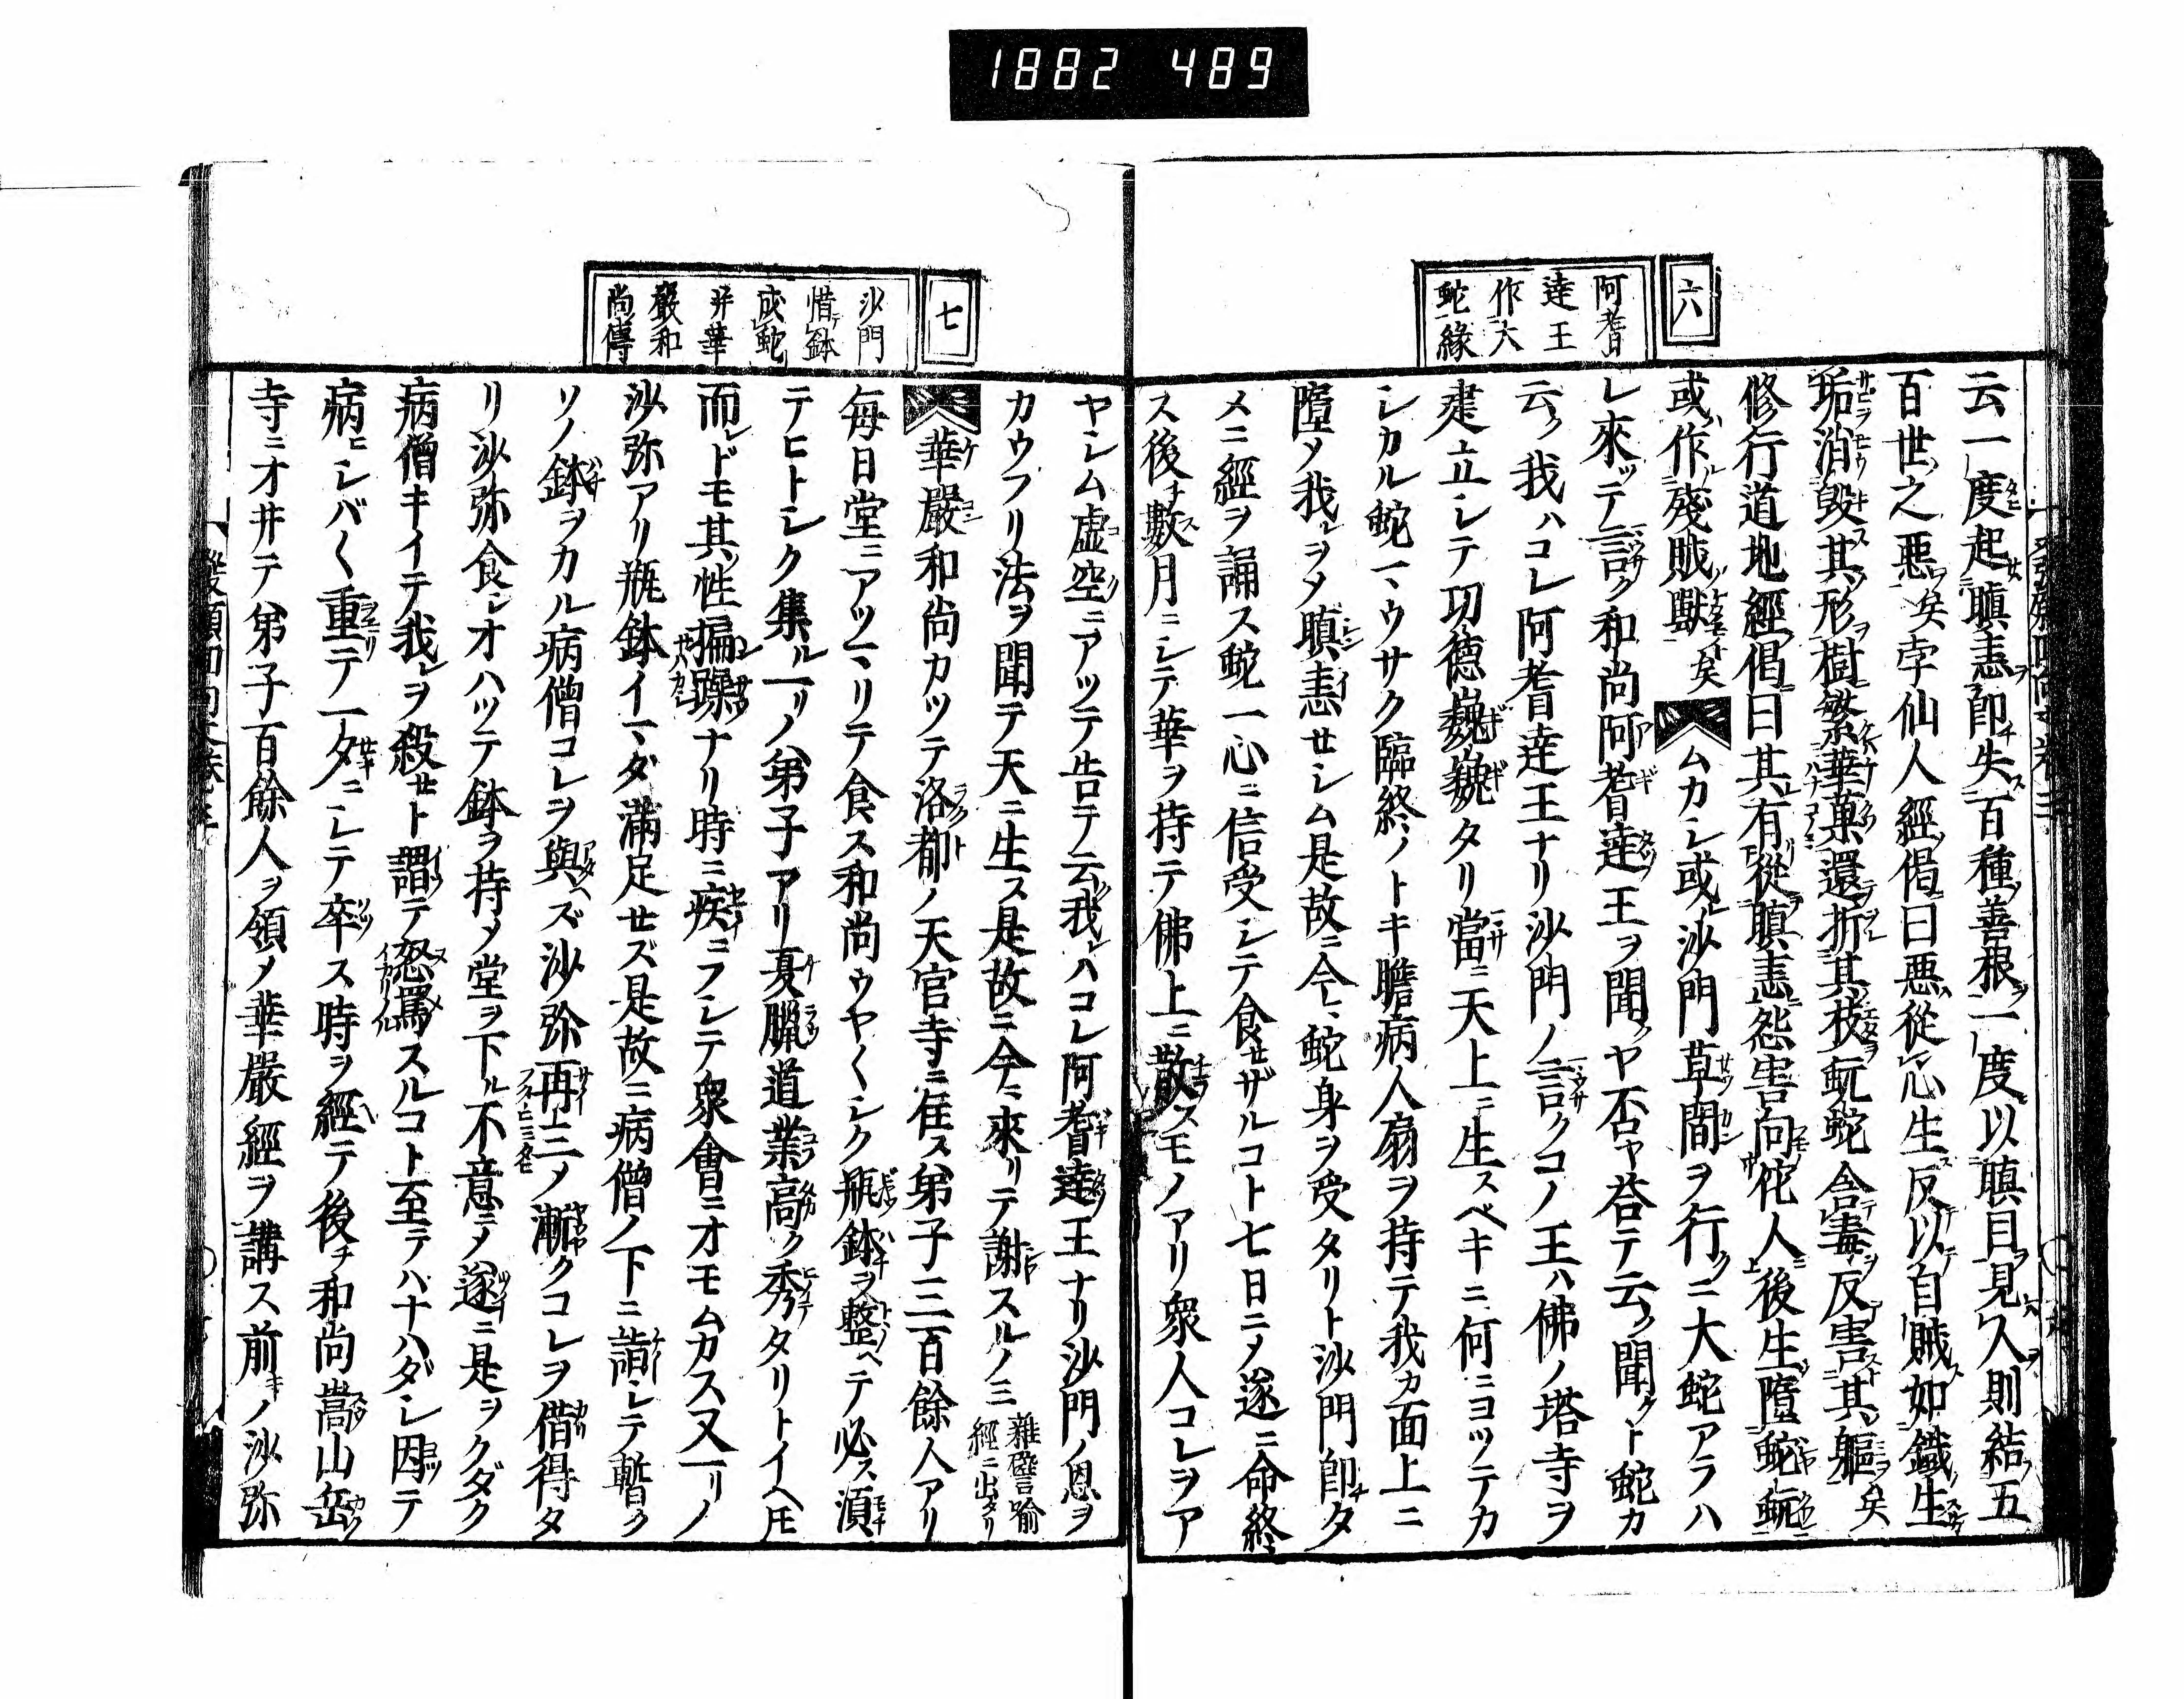 1882 489
六
阿耆
達王
作大
蛇緣
云一度起瞋恚即失百種善根一度以瞋目見人則結五
百世之惡矣孛仙人經偈曰惡從心生反以自賊如鐵生
垢消毀其形樹繁華菓還折其枝蚖蛇含毒反害其軀矣
修行道地經偈曰其有從瞋恚怨害向佗人後生墮蛇蚖
或作殘賊獸矣ムカシ或沙門草間ヲ行クニ大蛇アラハ
レ來ッテ言ク和尚阿耆達王ヲ聞クヤ否ヤ荅テ云ク聞クト蛇カ
云ク我ハコレ阿耆達王ナリ沙門ノ言クコノ王ハ佛ノ塔寺ヲ
建立シテ功德巍巍タリ當ニ天上ニ生スベキニ何ニヨッテカ
シカル蛇マウサク臨終ノトキ瞻病人扇ヲ持テ我カ面上ニ
墮メ我レヲメ瞋恚セシム是故ニ今マ蛇身ヲ受タリト沙門即チタ
メニ經ヲ誦ス蛇一心ニ信受シテ食セザルコト七日ニメ遂ニ命終
ス後チ數月ニシテ華ヲ持テ佛上ニ散スモノアリ衆人コレヲア
七
沙門
惜鉢
成蛇
并華
嚴和
尚傳
ヤシム虚空ニアッテ告テ云我レハコレ阿耆達王ナリ沙門ノ恩ヲ
カウフリ法ヲ聞テ天ニ生ス是故ニ今マ來リテ謝スルノミ雜譬喻經ニ出タリ
華嚴和尚カツテ洛都ノ天官寺ニ住ス弟子三百餘人アリ
每日堂ニアツマリテ食ス和尚ウヤ〱シク瓶鉢ヲ整ヘテ必ス須
テヒトシク集ル一リノ弟子アリ夏臘道業高ク秀タリトイヘ𪜈
而レドモ其ノ性褊躁ナリ時ニ疾ニフシテ衆會ニオモムカス又一リノ
沙弥アリ瓶鉢イマダ滿足セズ是故ニ病僧ノ下ニ詣シテ暫ク
ソノ鉢ヲカル病僧コレヲ與ヘズ沙弥再三ノ漸クコレヲ借得タ
リ沙弥食シオハッテ鉢ヲ持メ堂ヲ下ル不意ニメ遂ニ是ヲクダク
病僧キイテ我レヲ殺セト謂テ怒罵スルコト至テハナハダシ因テ
病ヒシバ〱重テ一夕ニシテ卒ス時ヲ經テ後チ和尚嵩山岳
寺ニオ井テ弟子百餘人ヲ領メ華嚴經ヲ講ス前キノ沙弥